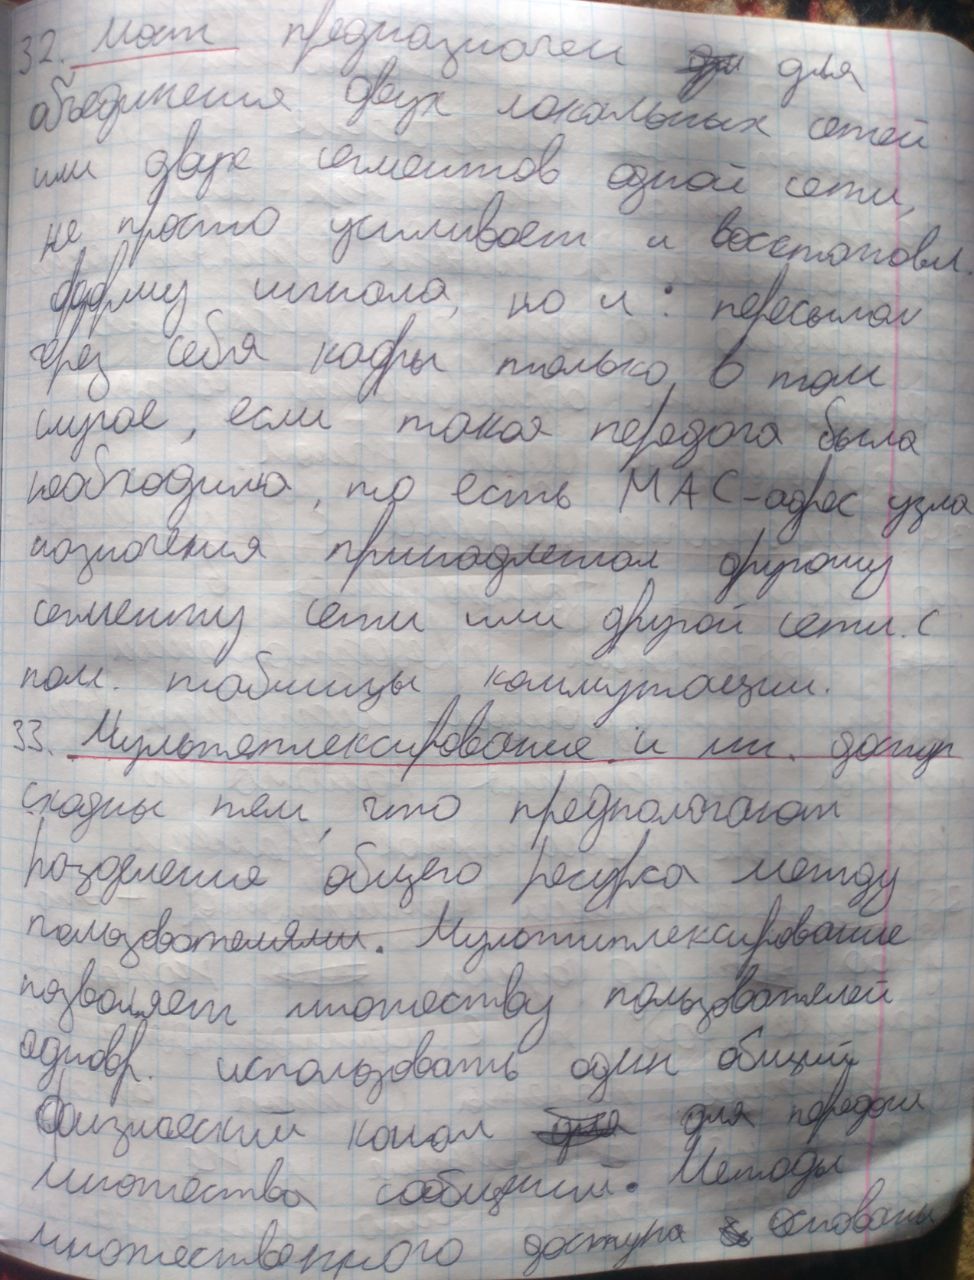 32. Мост предназначен для
объединения двух локальных сетей
или двух сегментов одной сети,
не просто усиливает и восстановл.
форму сигнала, но и: пересылает
через себя кадры только в том
случае, если такая передача была
необходима, то есть MAC-адрес узла
назначения принадлежал другому
сегменту сети или другой сети. С
пом. таблицы коммутации.
33. Мультиплексирование и мн. доступ
сходны тем, что предполагают
разделение общего ресурса между
пользователями. Мультиплексирование
позволяет множеству пользователей
одновр. использовать один общий
физический канал для передачи
множества сообщений. Методы
множественного доступа основаны